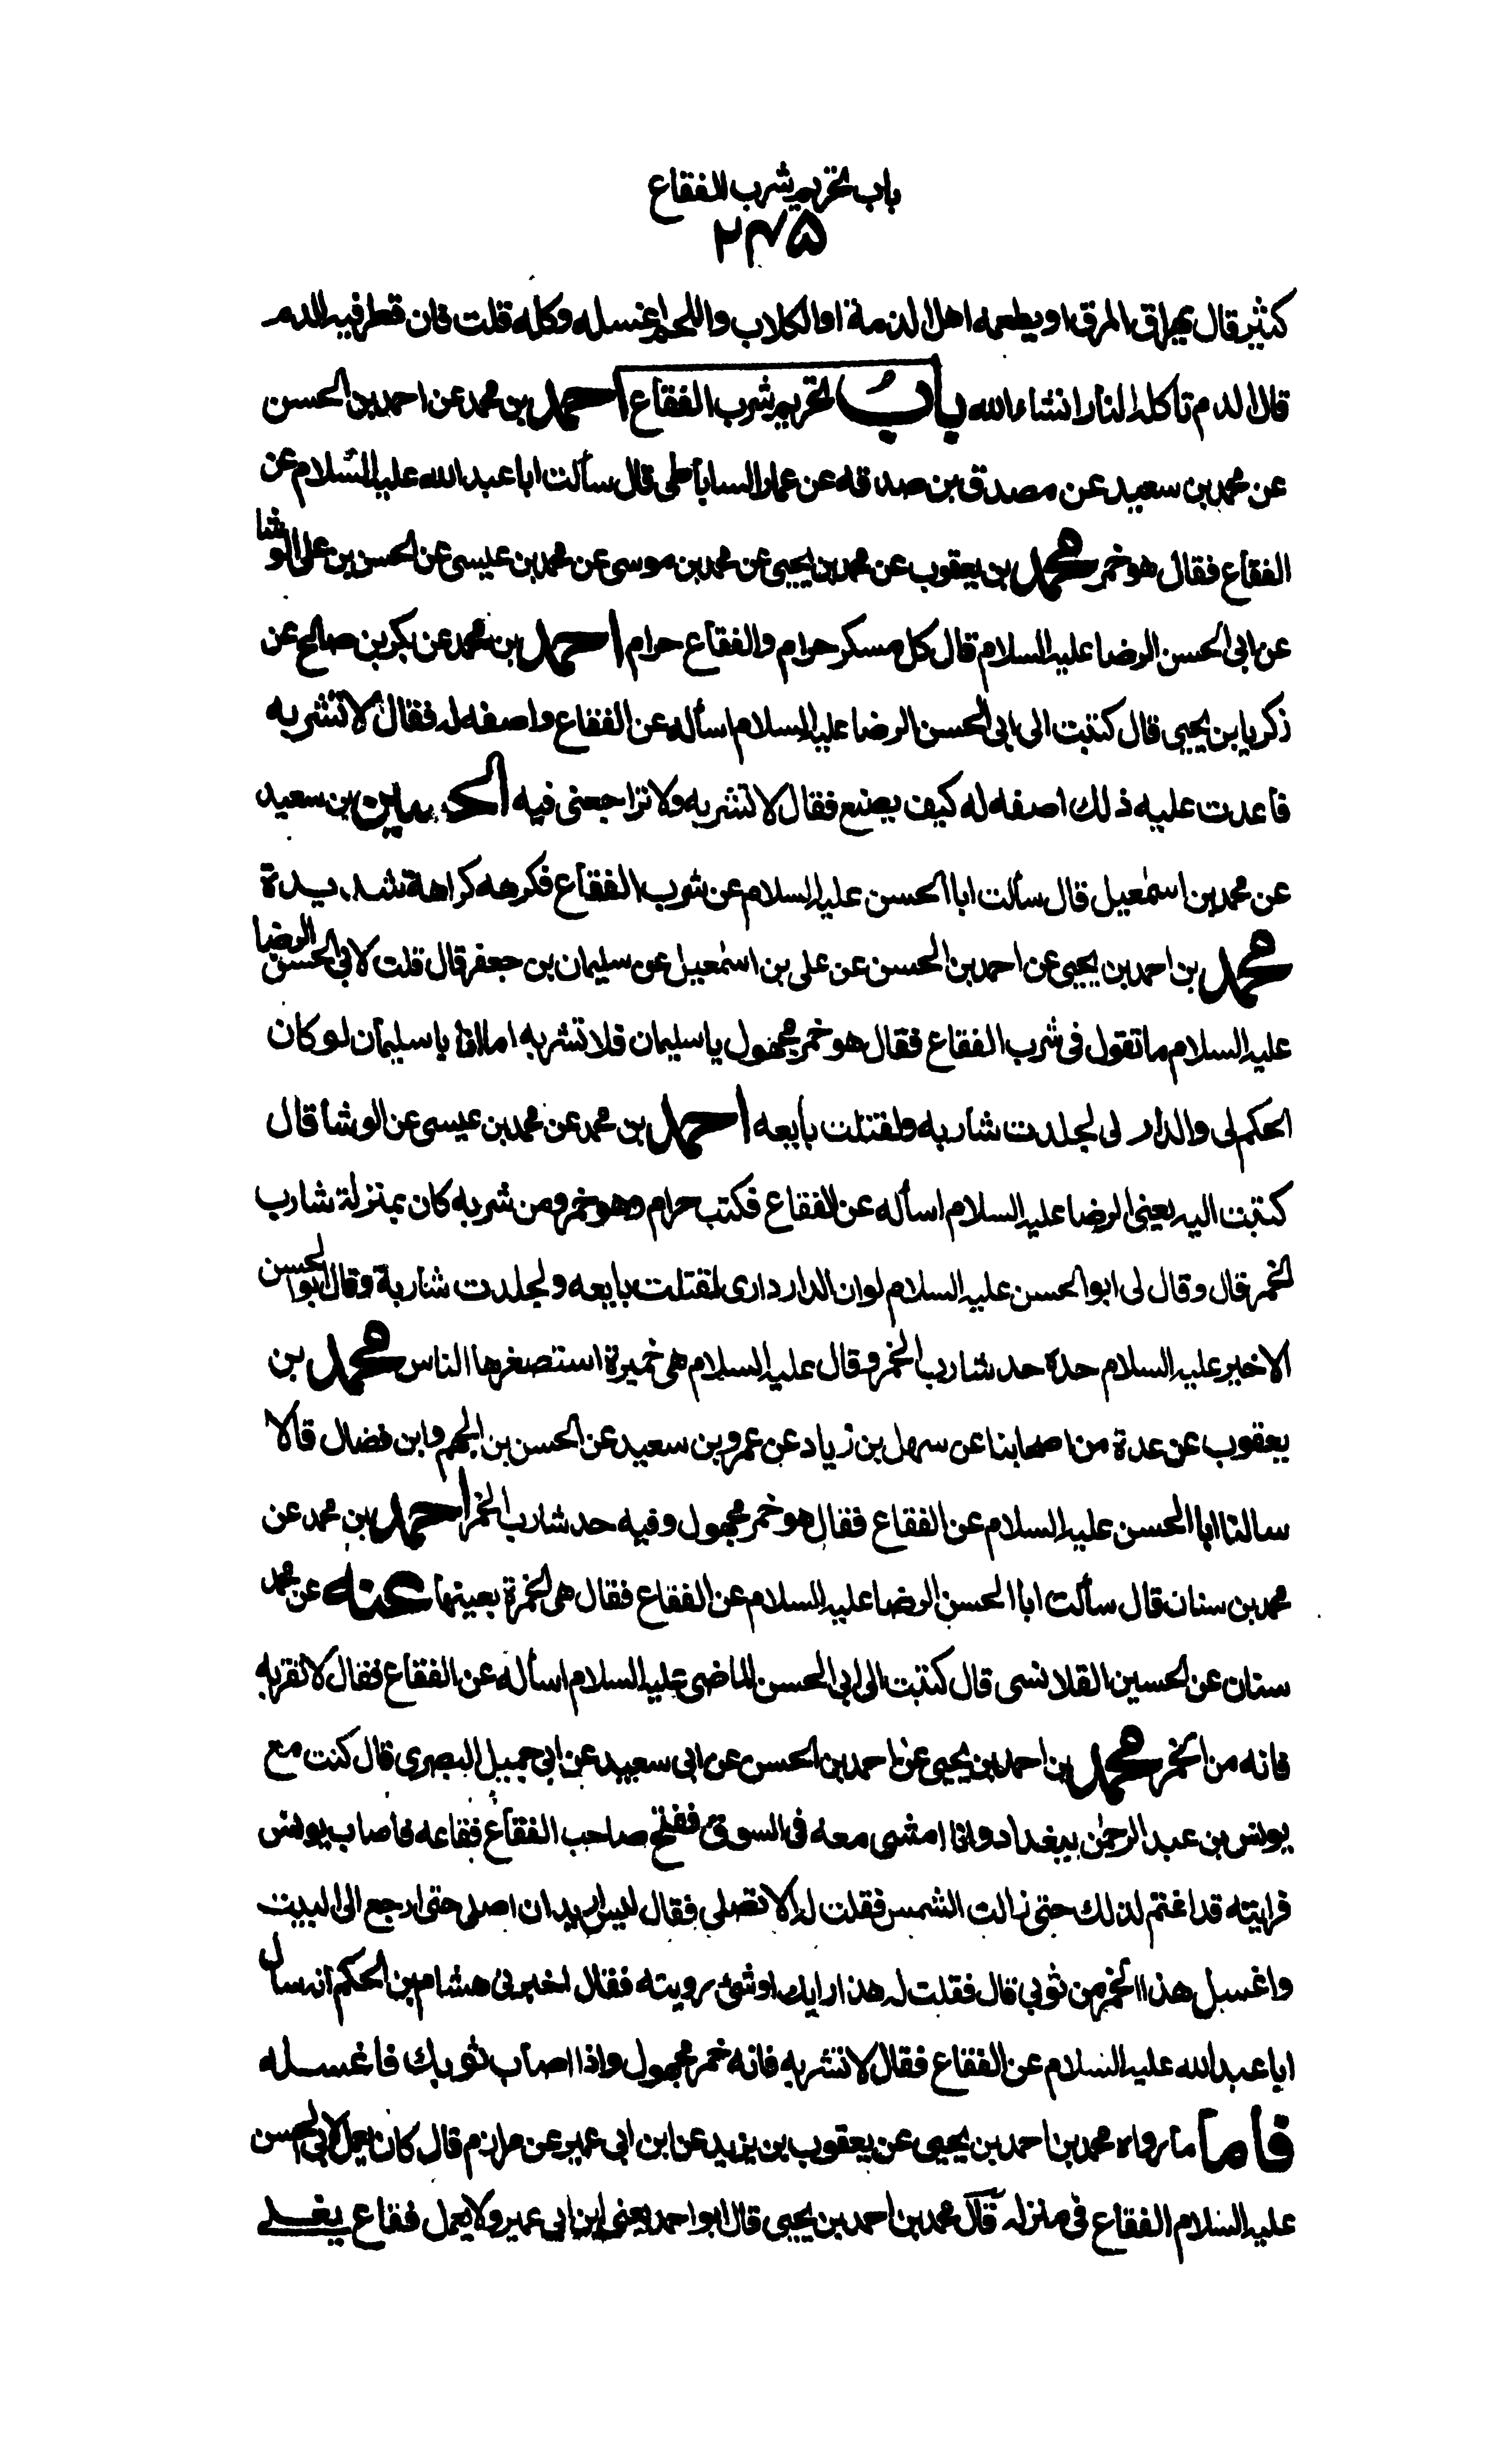 باب تحريم شرب الفقاع
٢٣٥
كثير قال يهراق المرق او يطعمه اهل الذمة او الكلاب واللحم اغسله وكله قلت فان قطر فيه الدم
قال الدم تاكله النار انشاء الله باب تحريم شرب الفقاع احمد بن محمد عن احمد بن الحسن
عن محمد بن سعيد عن مصدق بن صدقه عن عمار الساباطى قال سألت ابا عبد الله عليه السلام عن
الفقاع فقال هو خمر محمد بن يعقوب عن محمد بن يحيى عن محمد بن موسى عن محمد بن عيسى عن الحسن بن على الوشا
عن ابى الحسن الرضا عليه السلام قال كل مسكر حرام والفقاع حرام احمد بن محمد عن بكر بن صالح عن
زكريا بن يحيى قال كتبت الى ابى الحسن الرضا عليه السلام اسأله عن الفقاع واصفه له فقال لا تشربه
فاعدت عليه ذلك اصفه له كيف يصنع فقال لا تشربه ولا تراجعنى فيه الحسين بن سعيد
عن محمد بن اسمعيل قال سألت ابا الحسن عليه السلام عن شرب الفقاع فكرهه كراهة شديدة
محمد بن احمد بن يحيى عن احمد بن الحسن عن على بن اسمعيل عن سليمان بن جعفر قال قلت لابى الحسن الرضا
عليه السلام ما تقول فى شرب الفقاع فقال هو خمر مجهول يا سليمان فلا تشربه اما انا يا سليمان لو كان
الحكم لى والدار لى لجلدت شاربه ولقتلت بايعه احمد بن محمد عن محمد بن عيسى عن الوشا قال
كتبت اليه يعنى الرضا عليه السلام اسأله عن الفقاع فكتب حرام وهو خمر ومن شربه كان بمنزلة شارب
الخمر قال وقال لى ابو الحسن عليه السلام لو ان الدار دارى لقتلت بايعه ولجلدت شاربة وقال ابو الحسن
الاخير عليه السلام حده حد شارب الخمر وقال عليه السلام هى خميرة استصغرها الناس محمد بن
يعقوب عن عدة من اصحابنا عن سهل بن زياد عن عمرو بن سعيد عن الحسن بن الجهم وابن فضال قالا
سالنا ابا الحسن عليه السلام عن الفقاع فقال هو خمر مجهول وفيه حد شارب الخمر احمد بن محمد عن
محمد بن سنان قال سألت ابا الحسن الرضا عليه السلام عن الفقاع فقال هى الخمرة بعينها عنه عن محمد
سنان عن الحسين القلانسى قال كتبت الى ابى الحسن الماضى عليه السلام اسأله عن الفقاع فقال لا تقربه
فانه من الخمر محمد بن احمد بن يحيى عن احمد بن الحسن عن ابى سعيد عن ابى جميل البصرى قال كنت مع
يونس بن عبد الرحمن ببغداد وانا امشى معه فى السوق ففتح صاحب الفقاع فقاعه فاصاب يونس
فرايته قد اغتم لذلك حتى زالت الشمس فقلت له الا تصلى فقال ليس اريد ان اصلى حتى ارجع الى البيت
واغسل هذا الخمر من ثوبى قال فقلت له هذا رايك او شئ ترويته فقال اخبرنى هشام بن الحكم انه سال
ابا عبد الله عليه السلام عن الفقاع فقال لا تشربه فانه خمر مجهول واذا اصاب ثوبك فاغسله
فاما ما رواه محمد بن احمد بن يحيى عن يعقوب بن يزيد عن ابن ابى عمير عن مرازم قال كان يعمل لابى الحسن
عليه السلام الفقاع فى منزله قال محمد بن احمد بن يحيى قال ابو احمد يعنى ابن ابى عمير ولا يعمل فقاع يغلى